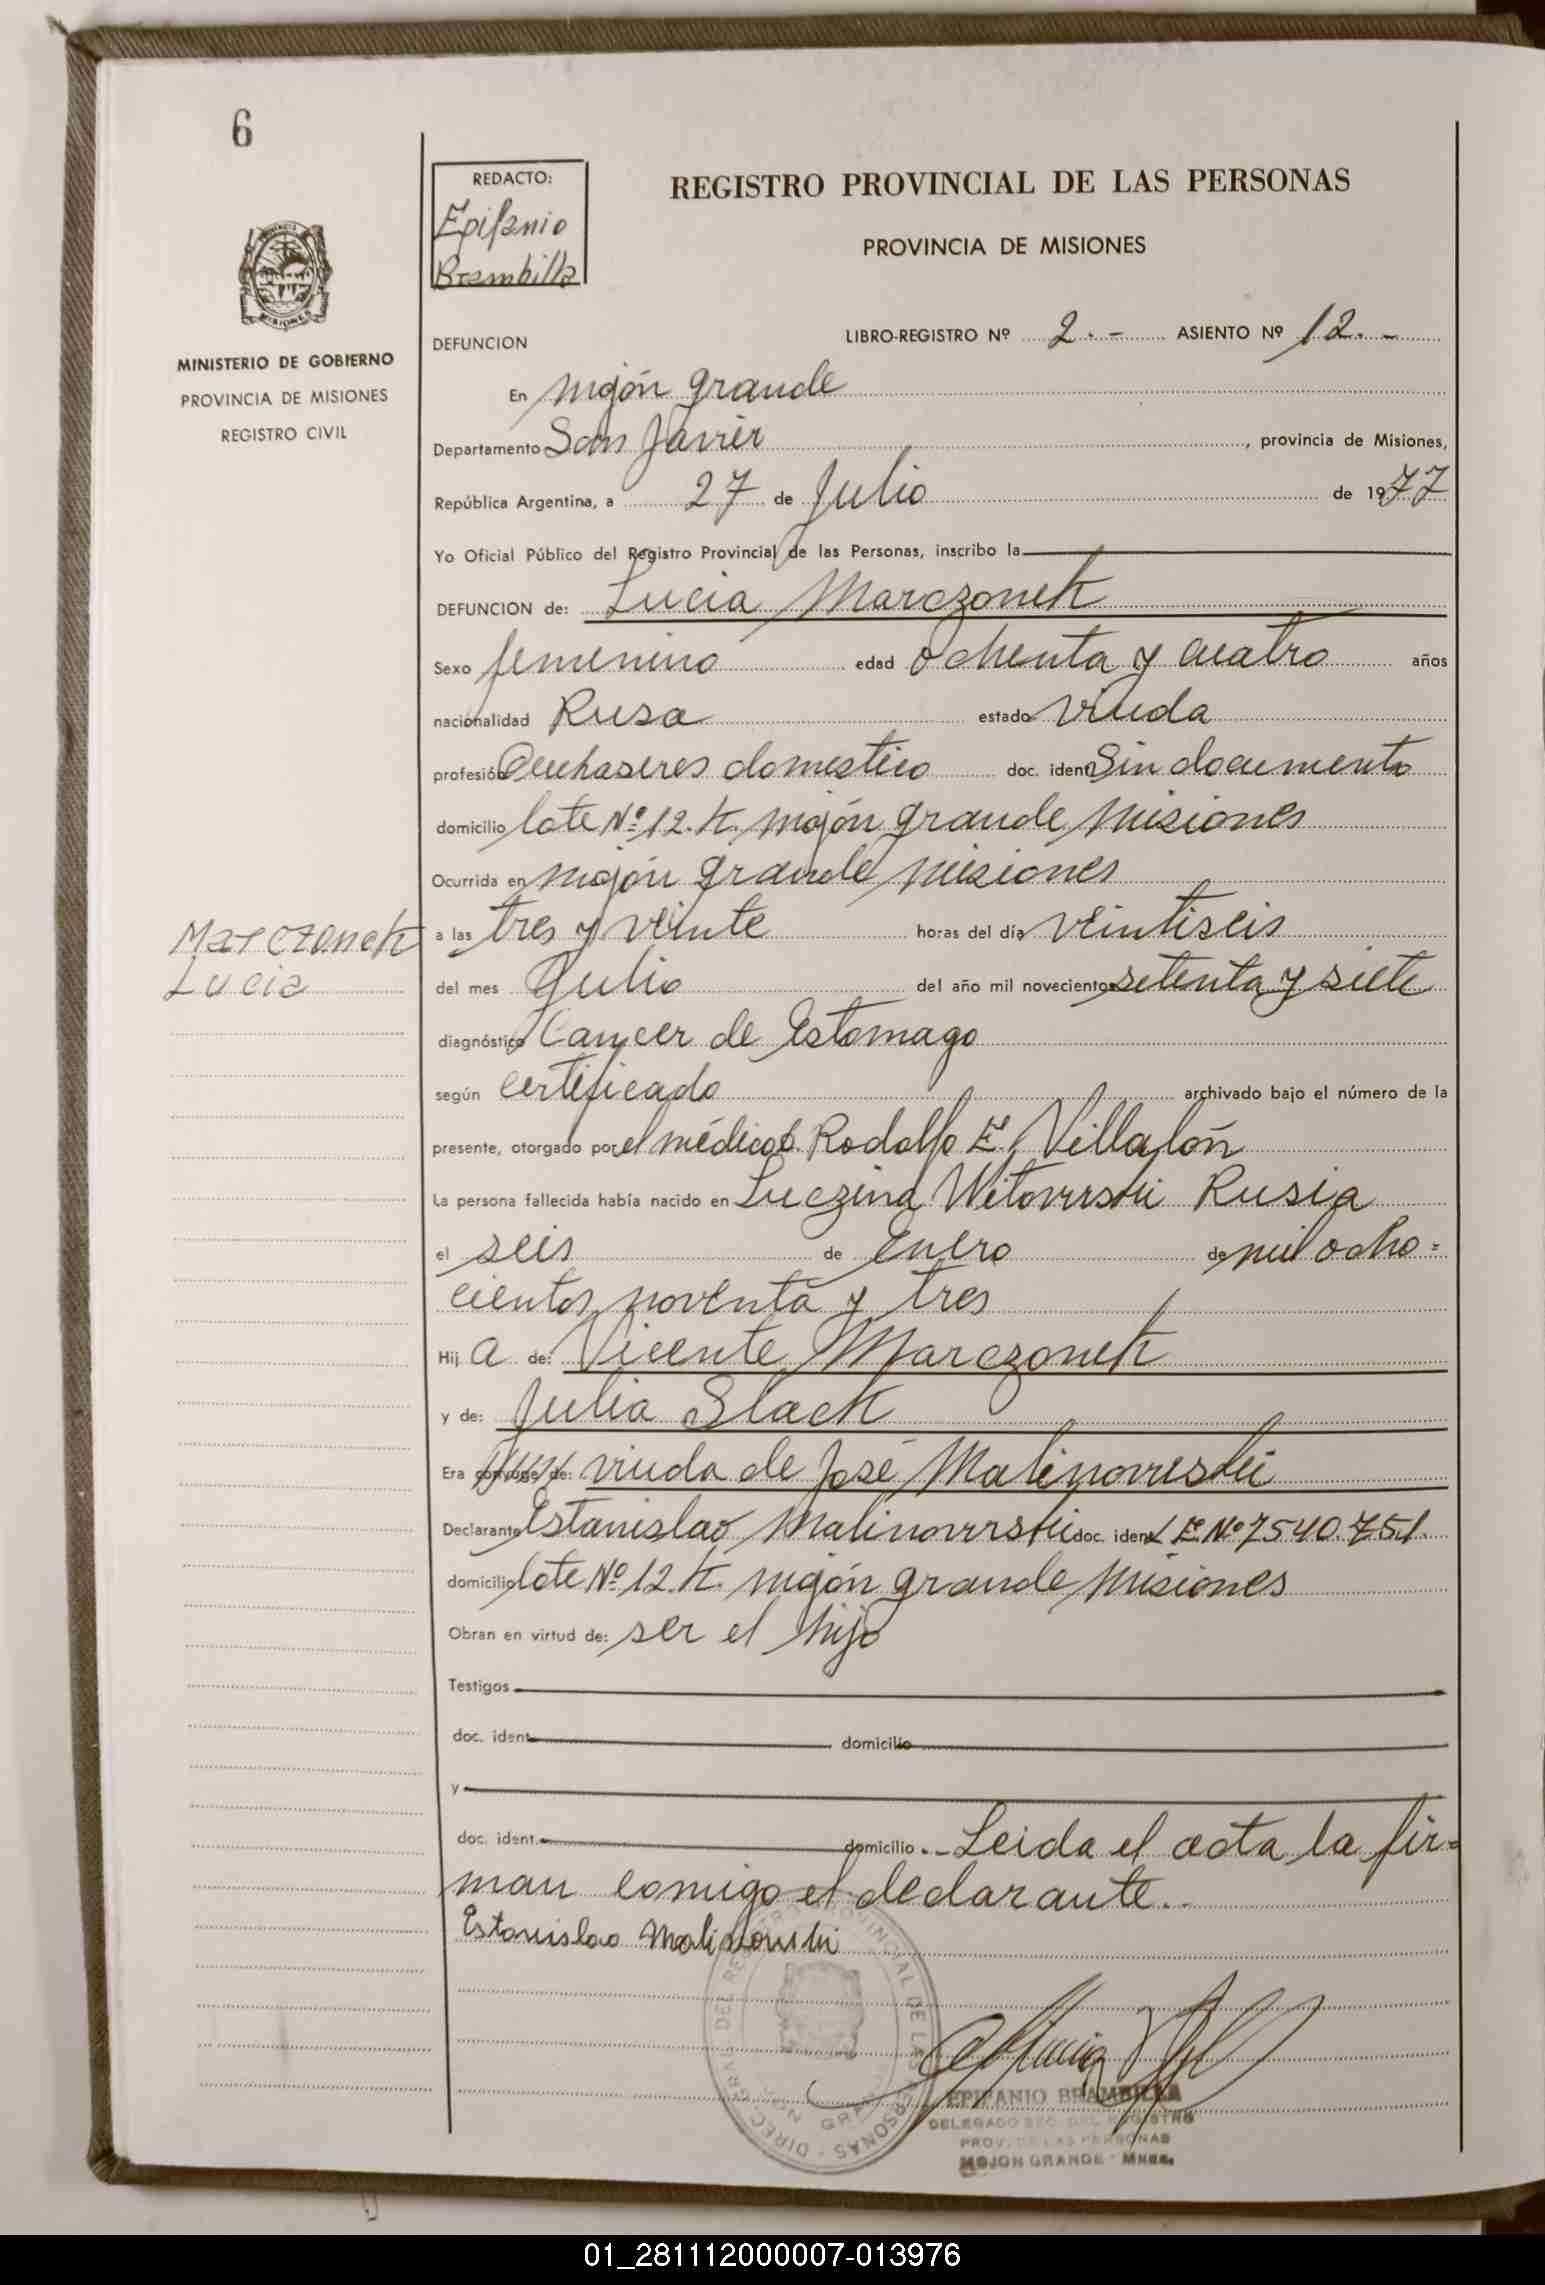 6
REDACTO:
Epifanio
Brambilla
REGISTRO PROVINCIAL DE LAS PERSONAS
PROVINCIA DE MISIONES
MISIONES
MINISTERIO DE GOBIERNO
PROVINCIA DE MISIONES
REGISTRO CIVIL
DEFUNCION LIBRO-REGISTRO Nº 2.- ASIENTO Nº 12.-
En mojón grande
Departamento San Javier, provincia de Misiones,
República Argentina, a 27 de Julio de 1977
Yo Oficial Público del Registro Provincial de las Personas, inscribo la
DEFUNCION de: Lucia Marczonek
Sexo femenino edad ochenta y cuatro años
nacionalidad Rusa estado Viuda
profesión Quehaseres domestico doc. ident. Sin documento
domicilio lote Nº 12. K. mojón grande Misiones
Ocurrida en mojón grande misiones
Marczonek
Lucia
a las tres y veinte horas del día veintiseis
del mes Julio del año mil novecientos setenta y siete
diagnóstico Cancer de Estomago
según certificado archivado bajo el número de la
presente, otorgado por el médico Rodolfo E. Villalón
La persona fallecida había nacido en Luczina Witovrski Rusia
el seis de Enero de mil ocho=
cientos noventa y tres
Hij a de: Vicente Marczonek
y de: Julia Slack
Era conyuge de: viuda de José Malinovrski
Declarante Estanislao Malinovrski doc. ident. L E. Nº 7540.751.
domicilio lote Nº 12. K. mojón grande Misiones
Obran en virtud de: ser el hijo
Testigos
doc. ident. domicilio
y
doc. ident. domicilio .- Leida el acta la fir=
man comigo el declarante..
Estanislao Malinovski
EPIFANIO BRAMBILLA
DELEGADO SEC. DEL REGISTRO
PROV. DE LAS PERSONAS
MOJON GRANDE - Mnes.
01_281112000007-013976